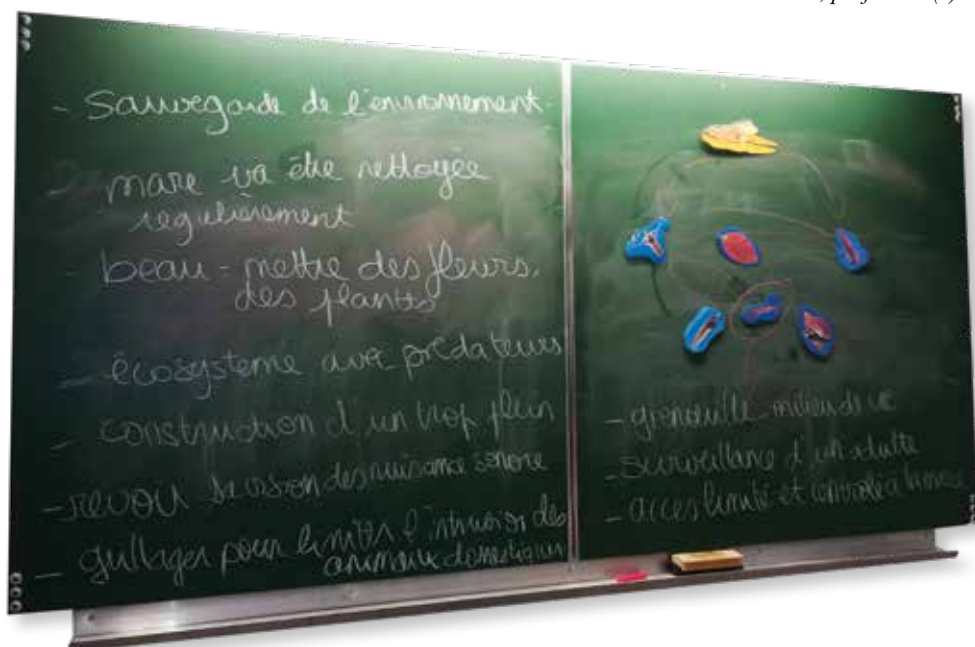 - Sauvegarde de l'environnement.
- mare va être nettoyée
régulièrement
- beau - mettre des fleurs,
des plantes
- écosysteme avec prédateurs
- construction d'un trop plein
- revoir la vision des nuisance sonore
- grillager pour limiter l'intrusion des
animaux domestiques
- grenouille milieu de vie
- surveillance d'un adulte
- acces limité et controlé à la mare